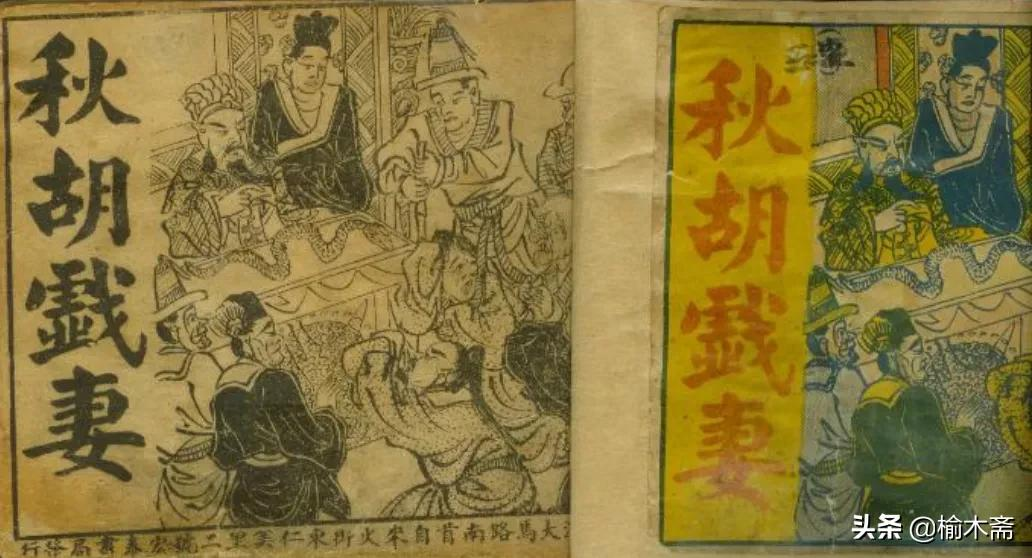 秋胡戲妻
大馬路南首自來火街東仁美里二號宏泰書局發行
秋胡戲妻
头条 @榆木斋